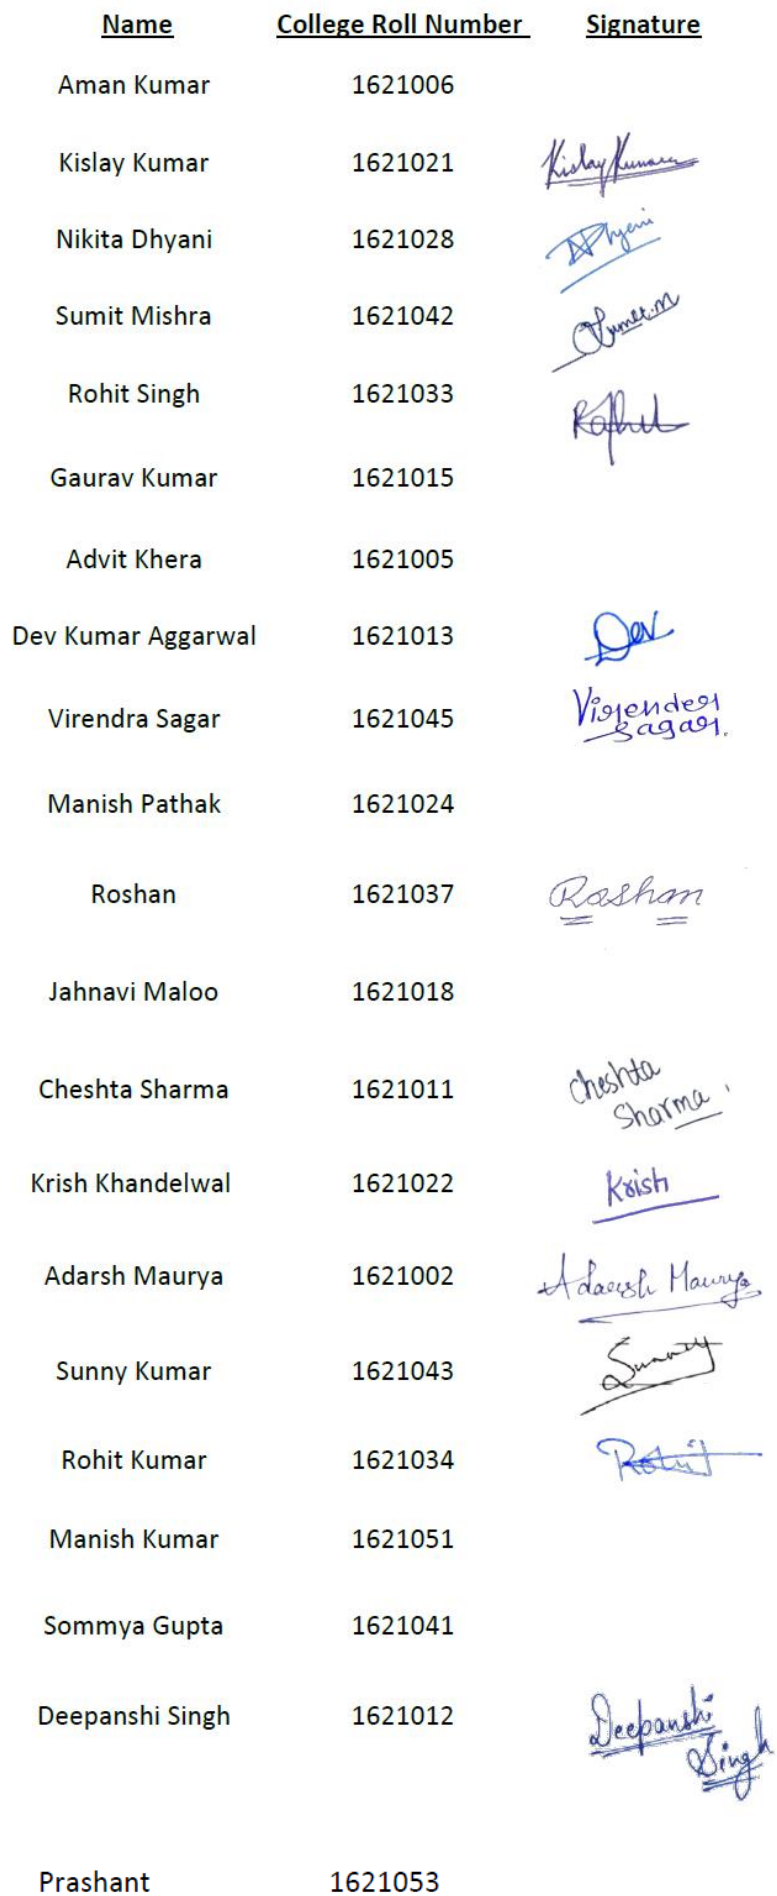 Name College Roll Number Signature
Aman Kumar 1621006
Kislay Kumar 1621021 Kislay Kumar
Nikita Dhyani 1621028 NDhyani
Sumit Mishra 1621042 Sumit.M
Rohit Singh 1621033
Gaurav Kumar 1621015
Advit Khera 1621005
Dev Kumar Aggarwal 1621013 Dev
Virendra Sagar 1621045 Virender
Sagar.
Manish Pathak 1621024
Roshan 1621037 Roshan
Jahnavi Maloo 1621018
Cheshta Sharma 1621011 Cheshta
Sharma
Krish Khandelwal 1621022 Krish
Adarsh Maurya 1621002 Adarsh Maurya
Sunny Kumar 1621043 Sunny
Rohit Kumar 1621034 Rohit
Manish Kumar 1621051
Sommya Gupta 1621041
Deepanshi Singh 1621012 Deepanshi
Singh
Prashant 1621053